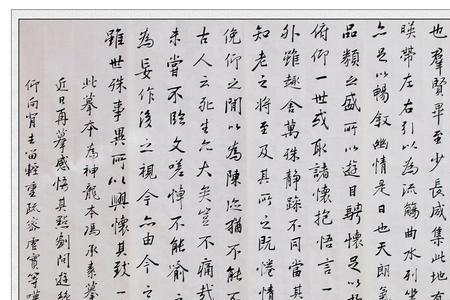 也羣賢畢至少長咸集此地有
暎帶左右引以為流觴曲水列坐
亦足以暢敘幽情是日也天朗氣
品類之盛所以遊目騁懷足以極
俯仰一世或取諸懷抱悟言一
外雖趣舍萬殊静躁不同當其
知老之将至及其所之既惓情
俛仰之閒以為陳迹猶不能不
古人云死生亦大矣豈不痛哉
未嘗不臨文嗟悼不能喻之
為妄作後之視今亦由今之
雖世殊事異所以興懷其致一
此摹本為神龍本馮承素摹
近日再摹感悟其點劃間遊絲
仰向背去留輕重疏密虛實等